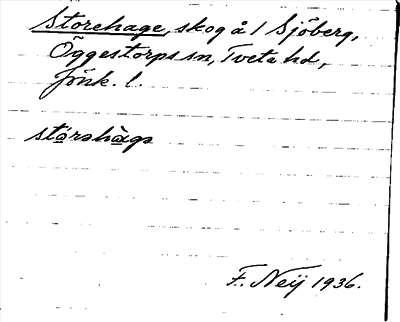 Storehage, skog å 1 Sjöberg,
Öggestorps sn, Tveta hd,
Jönk. l.
stórshàgs
F. Neij 1936.